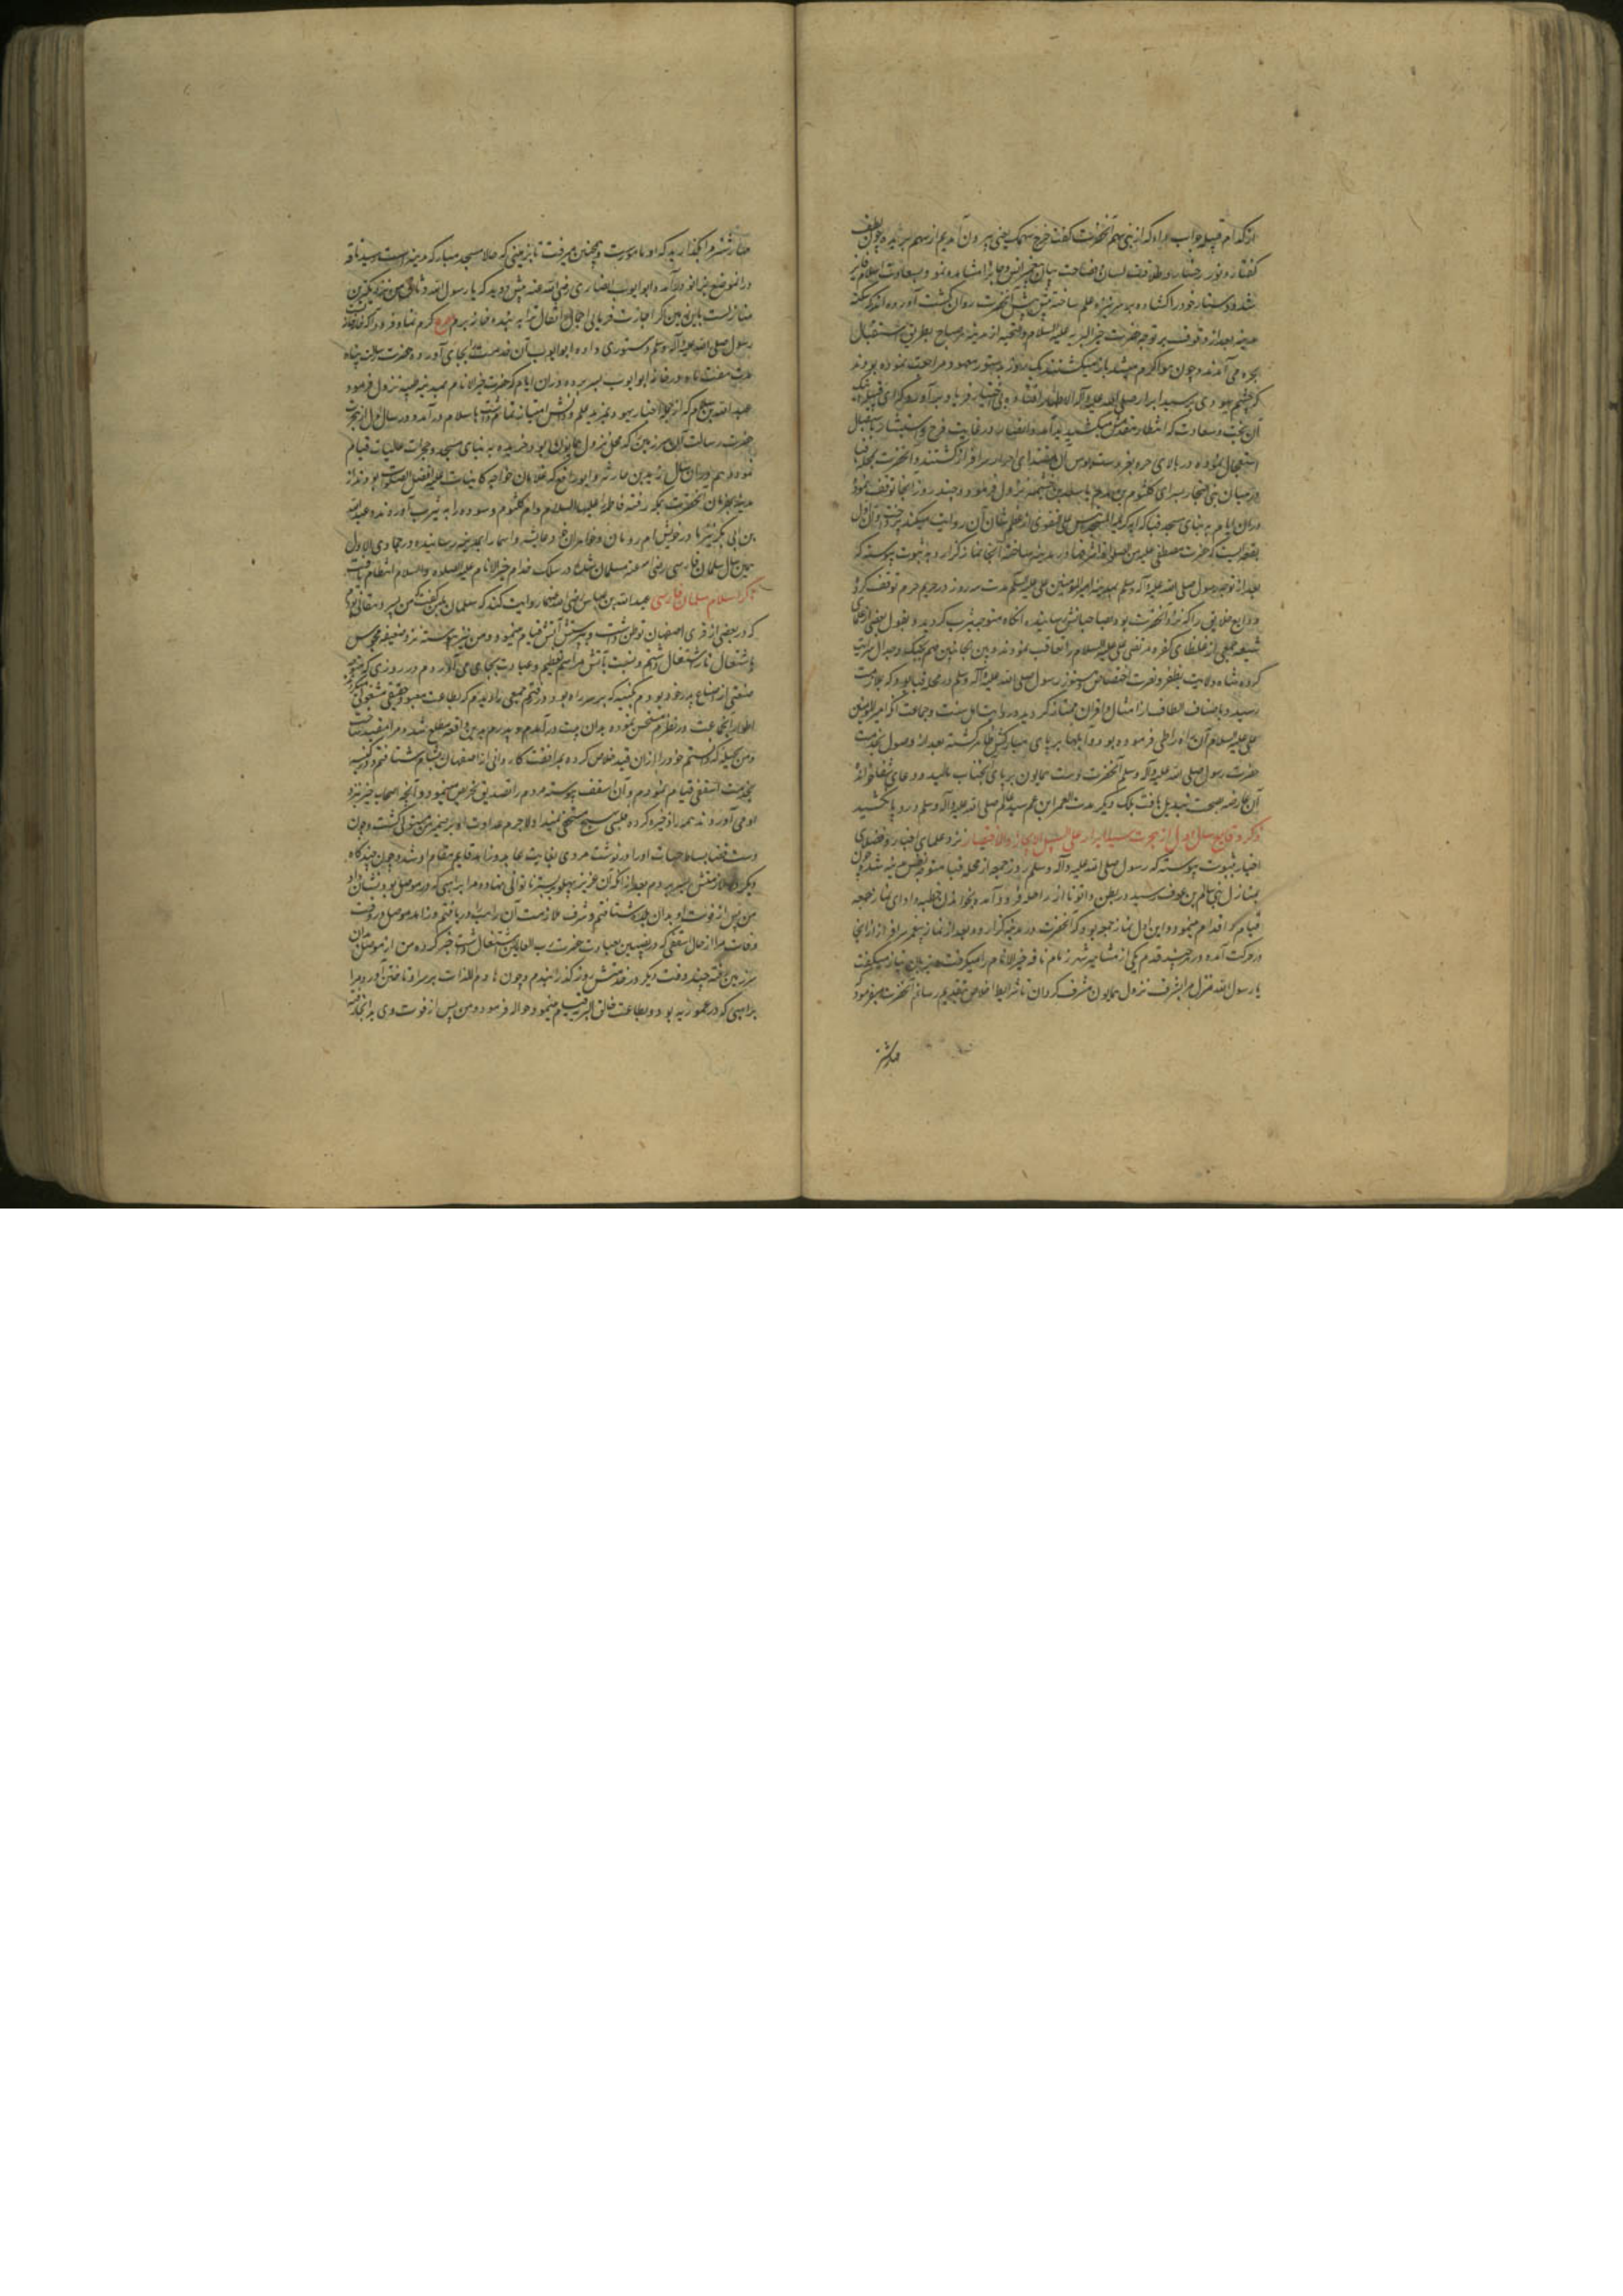 از کدام قبیله جواب داد که از بنی سهم آنحضرت گفت خرج سهمک یعنی بیرون آمدیم از سهم بریده چون لطف
گفتار و نور رخسار و طلاقت لسان و فصاحت بیان خیر انس و جان را مشاهده نمود بسعادت اسلام فایز
شد و دستار خود را گشاده و بر سر نیزه علم ساخته پیش پیش آنحضرت روان گشت آورده‌اند که سکنه
مدینه بعد از وقوف بر توجه حضرت خیر البریه علیه السلام والتحیه از مدینه هر صباح بطریق استقبال
بحره می آمدند و چون هوا گرم میشد باز میگشتند یک روز بدستور معهود مراجعت نموده بودند
که چشم یهودی بر سید ابرار صلی الله علیه و آله الاطهار افتاده بی اختیار فریاد برآورد که ای قبیله اینک
آن بخت و سعادت که انتظار مقدمش میکشیدید آمد و انصار در غایت فرح و استبشار باستقبال
استعجال نموده در بالای حره بعز دستبوس آن مقتدای احرار سرافراز گشتند و آنحضرت بمحله قبا
در میان بنی النجار بسرای کلثوم بن هدم یا سعد بن خیثمه نزول فرمود و چند روز آنجا توقف نمود
در آن ایام به بنای مسجد قبا که آیه کریمه لمسجد اسس علی التقوی از عظم شان آن روایت میکند پرداخت و آن اول
بقعه‌ایست که حضرت مصطفی علیه من الصلوات در مدینه ساخته آنجا نماز گزارد و به ثبوت پیوسته که
بعد از توجه رسول صلی الله علیه و آله وسلم بمدینه امیر المؤمنین علی علیه السلم مدت سه روز در حریم حرم توقف کرد
و ودایع خلایق را که نزد آنحضرت بود بصاحبانش رسانیده آنگاه متوجه یثرب گردید و بقول بعضی از علما
شیعه جمعی از غلظای کفره مرتضی علی علیه السلام را تعاقب نمودند و بین الجانبین مهم بجنگ و جدال سرایت
کرده شاه ولایت بظفر و نصرت اختصاص هنوز رسول صلی الله علیه و آله وسلم در محله قبا بود که بملازمت
رسید و باصناف الطاف از امثال و اقران ممتاز گردید و روایت اهل سنت و جماعت آنکه امیر المؤمنین
علی علیه السلام آن راه را طی فرموده بود و آبلها بر پای مبارکش ظاهر گشته بعد از وصول بخدمت
حضرت رسول صلی الله علیه و آله وسلم آنحضرت دست همایون بر پای آنجناب مالید و دعای شفا خوانده
آن عارضه بصحت تبدیل یافت بلک دیگر مدت العمر ابن عم سید عالم صلی الله علیه و آله وسلم درد پا نکشید
ذکر وقایع سال اول از هجرت سید ابرار علی سبیل الایجاز والاختصار نزد علمای اخبار و فضلای
اخیار بثبوت پیوسته که رسول صلی الله علیه و آله وسلم روز جمعه از محله قبا متوجه نفس مدینه شده چون
بمنازل بنی سالم بن عوف رسید در بطن وادی از راحله فرود آمد و بخواندن خطبه و ادای نماز جمعه
قیام و اقدام نمود و این اول نماز جمعه بود که آنحضرت در مدینه گزارد و بعد از نماز پیغمبر سرافراز از آنجا
در حرکت آمده و در هر چند قدم یکی از مشاهیر یثرب زمام ناقه خیر الانام را میگرفت و بزبان نیاز میگفت
یا رسول الله منزل مرا بشرف نزول همایون مشرف گردان تا شرایط اخلاص بتقدیم رسانم آنحضرت میفرمود
مهار شتر
مهار شتر مرا بگذارید که او مامورست و همچنین میرفت تا بزمینی که حالا مسجد مبارک مدینه است رسید ناقه
در آن موضع بزانو درآمده ابو ایوب انصاری رضی الله عنه پیش دوید که یا رسول الله وثاق من نزدیکترین
منازلست باین زمین اگر اجازت فرمائی احمال و اثقال ترا به بنده خانه برم مصرع کرم نما و فرود آ که خانه خانه تست
رسول صلی الله علیه و آله وسلم دستوری داده ابو ایوب آن خدمت بجای آورد و حضرت رسالت پناه
مدت هفت ماه در خانه ابو ایوب بسر برده در آن ایام که حضرت خیر الانام بمدینه طیبه نزول فرمود
عبدالله بن سلام که از جمله احبار یهود بمزید علم و دانش امتیاز تمام داشت باسلام درآمد و در سال اول از هجرت
حضرت رسالت آن سرزمین که محل نزول همایون بود خریده به بنای مسجد و حجرات عالیات قیام
نمود و هم در آن سال زید بن حارثه و ابو رافع که غلامان خواجه کاینات علیه افضل الصلوات بودند از
مدینه بفرمان آنحضرت بمکه رفته فاطمه علیها السلام و ام کلثوم و سوده را به یثرب آوردند و عبدالله
بن ابی بکر نیز مادر خویش ام رومان و خواهران خود عایشه و اسما را بمدینه رسانیده در جمادی الاول
همین سال سلمان فارسی رضی الله عنه مسلمان شده در سلک خدام خیر الانام علیه الصلوه والسلام انتظام یافت
ذکر اسلام سلمان فارسی عبدالله بن عباس رضی الله عنهما روایت کند که سلمان بمن گفت من پسر دهقانی بودم
که در بعضی از قری اصفهان توطن داشت و بپرستش آتش قیام مینمود و من نیز پیوسته نزد ضعیفه مجوس
باشتعال نار اشتغال داشتم و نسبت بآتش مراسم تعظیم و عبادت بجای می آوردم در روزی که متوجه
ضیعتی از ضیاع پدر خود بودم بکنیسه که بر سر راه بود درفتم جمعی را دیدم که بطاعت معبود حقیقی مشغولی میکردند
اطوار آنجماعت در نظرم مستحسن نموده بدان ملت درآمدم و پدرم بدین واقعه مطلع شده مرا مقید ساخت
و من بحیله که دانستم خود را از آن قید خلاص کرده بمرافقت کاروانی از اصفهان بشام شتافتم و در کنیسه
بخدمت اسقفی قیام نمودم و آن اسقف پیوسته مردم را بتصدق تحریض مینمود و آنچه اصحاب خیر نزد
او می آوردند همه را ذخیره کرده فلسی بهیچ مستحق نمیداد لاجرم عداوت او بر ضمیر من مستولی گشت و چون
دست قضا بساط حیات او را درنوشت مردی بغایت عابد و زاهد قایم مقام او شد و من چندگاه
دیگر در ملازمتش بسر بردم بعد از آنکه آن عزیز پهلو ببستر ناتوانی نهاد و مرا براهبی که در موصل بود نشان داد
من پس از فوت او بدان بلده شتافتم و شرف ملازمت آن راهب دریافتم و زاهد موصل در وقت
وفات مرا از حال اسقفی که در نصیبین بعبادت حضرت رب العالمین اشتغال داشت خبر کرده من از موصل بدان
سرزمین رفته چند وقت دیگر در خدمتش روز گذرانیدم و چون هادم اللذات بر سر او تاختن آورد مرا
براهبی که در عموریه بود و بطاعت خالق البریه قیام مینمود حواله فرمود و من پس از فوت وی بدانجا رفته